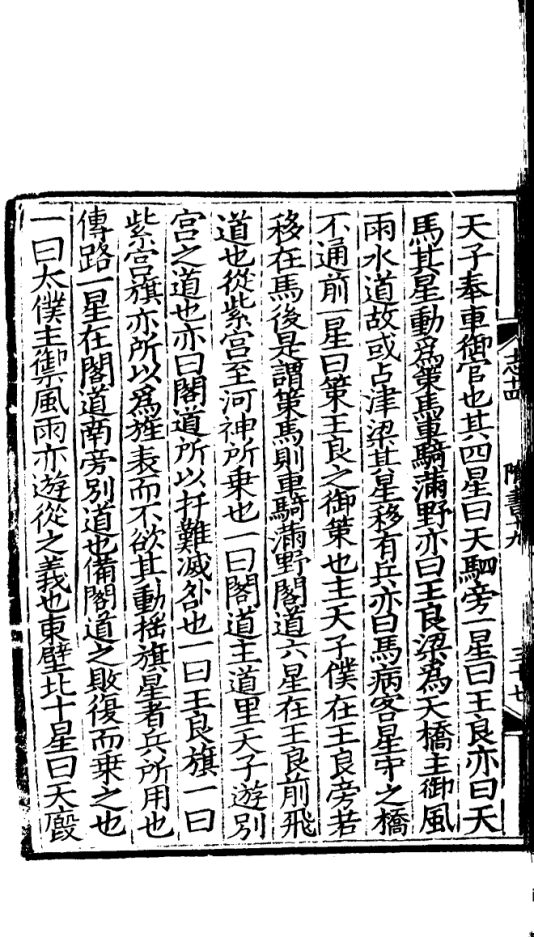 志十四　隋書十九　三十七
天子奉車御官也其四星曰天駟旁一星曰王良亦曰天
馬其星動爲策馬車騎滿野亦曰王良梁爲天橋主御風
雨水道故或占津梁其星移有兵亦曰馬病客星守之橋
不通前一星曰策王良之御策也主天子僕在王良旁若
移在馬後是謂策馬則車騎滿野閣道六星在王良前飛
道也從紫宫至河神所乗也一曰閣道主道里天子遊别
宫之道也亦曰閣道所以扞難滅咎也一曰王良旗一曰
紫宫旗亦所以爲旌表而不欲其動摇旗星者兵所用也
傳路一星在閣道南旁别道也備閣道之敗復而乗之也
一曰太僕主禦風雨亦遊從之義也東壁北十星曰天廏